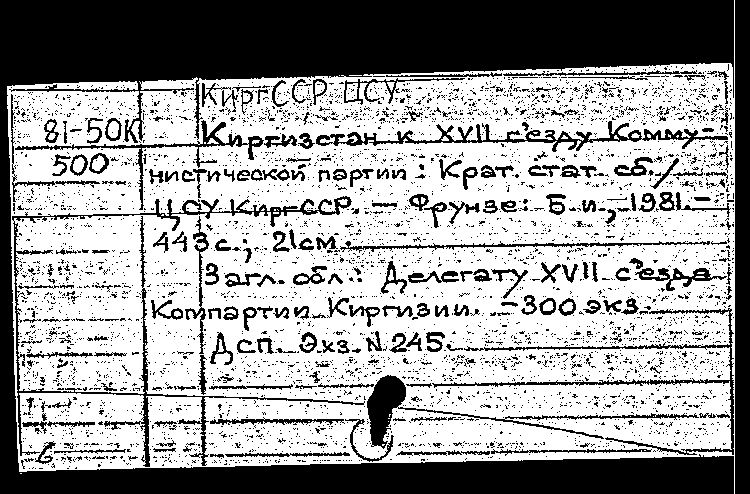 КиргССР ЦСУ.
81-50К Киргизстан к XVII съезду Комму-
500 нистической партии : Крат. стат. сб./
ЦСУ КиргССР. — Фрунзе: Б.и., 1981.-
443с.; 21см.
Загл. обл.: Делегату XVII съезда
Компартии Киргизии. -300 экз.
Дсп. Экз. N 245.